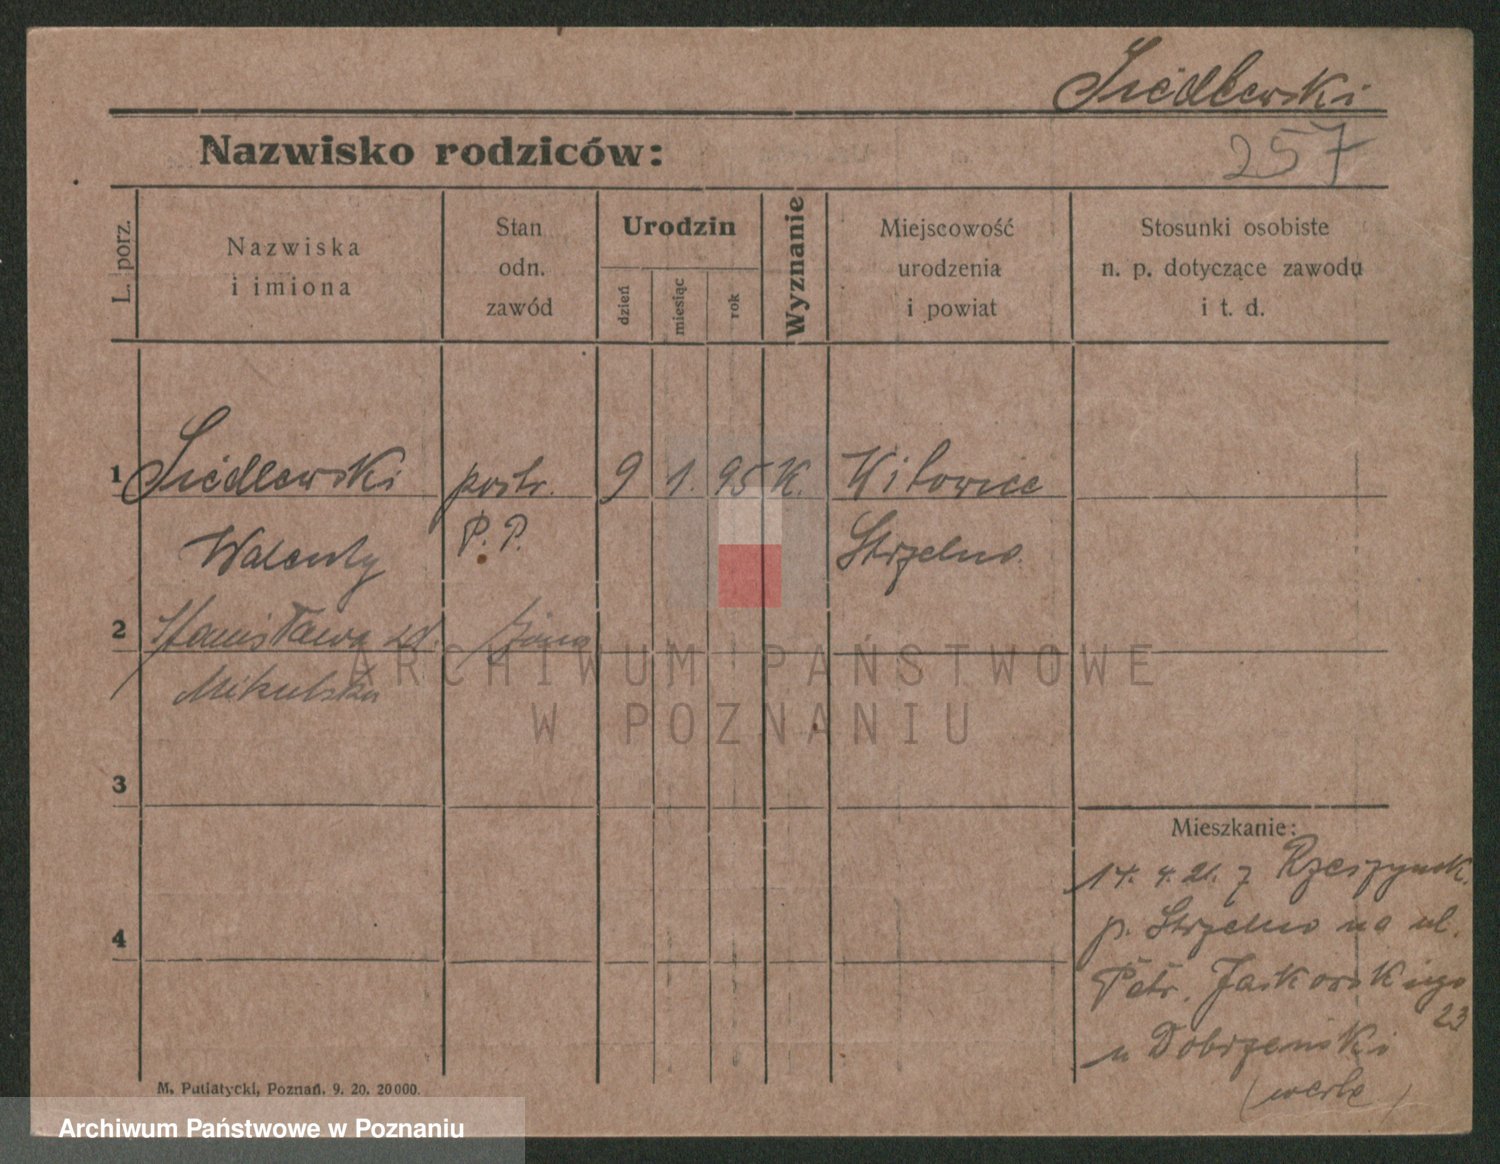 Siedlewski
Nazwisko rodziców:
257
L. porz.
Nazwiska
i imiona
Stan
odn.
zawód
Urodzin
dzień
miesiąc
rok
Wyznanie
Miejscowość
urodzenia
i powiat
Stosunki osobiste
n. p. dotyczące zawodu
i t. d.
1 Siedlewski postr. 9 1. 95 K. Witowice
Walenty P. P. Strzelno
2 Stanisława żona
Mikulska
ARCHIWUM PAŃSTWOWE
W POZNANIU
3
Mieszkanie:
14. 4. 21. z Rzeszynek
p. Strzelno na ul.
4
Patr. Jackowskiego
23
u Dobrzeński
M. Putiatycki, Poznań. 9. 20. 20000.
Archiwum Państwowe w Poznaniu